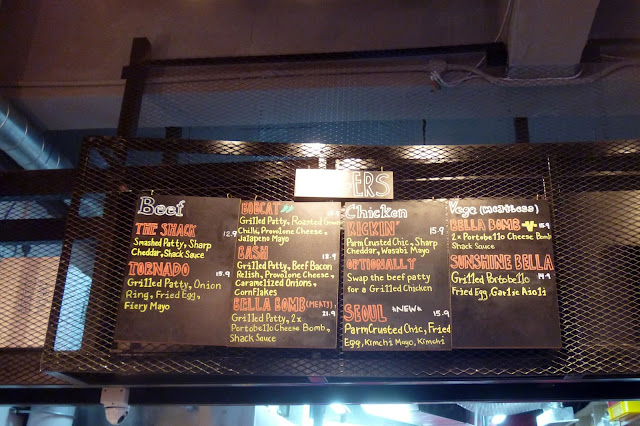 BURGERS
Beef
THE SHACK 12.9
Smashed Patty, Sharp
Cheddar, Shack Sauce
TORNADO 15.9
Grilled Patty, Onion
Ring, Fried Egg,
Fiery Mayo
BOBCAT 15.9
Grilled Patty, Roasted Green
Chili, Provolone Cheese,
Jalapeno Mayo
BASH 18.9
Grilled Patty, Beef Bacon
Relish, Provolone Cheese,
Caramelized Onions,
CornFlakes
BELLA BOMB (MEATY) 21.9
Grilled Patty, 2x
Portobello Cheese Bomb,
Shack Sauce
Chicken
KICKIN' 15.9
Parm Crusted Chic, Sharp
Cheddar, Wasabi Mayo
OPTIONALLY
Swap the beef patty
for a Grilled Chicken
SEOUL *NEW* 15.9
Parm Crusted Chic, Fried
Egg, Kimchi Mayo, Kimchi
Vege (meatless)
BELLA BOMB 15.9
2x Portobello Cheese Bomb
Shack Sauce
SUNSHINE BELLA 14.9
Grilled Portobello
Fried Egg, Garlic Aioli